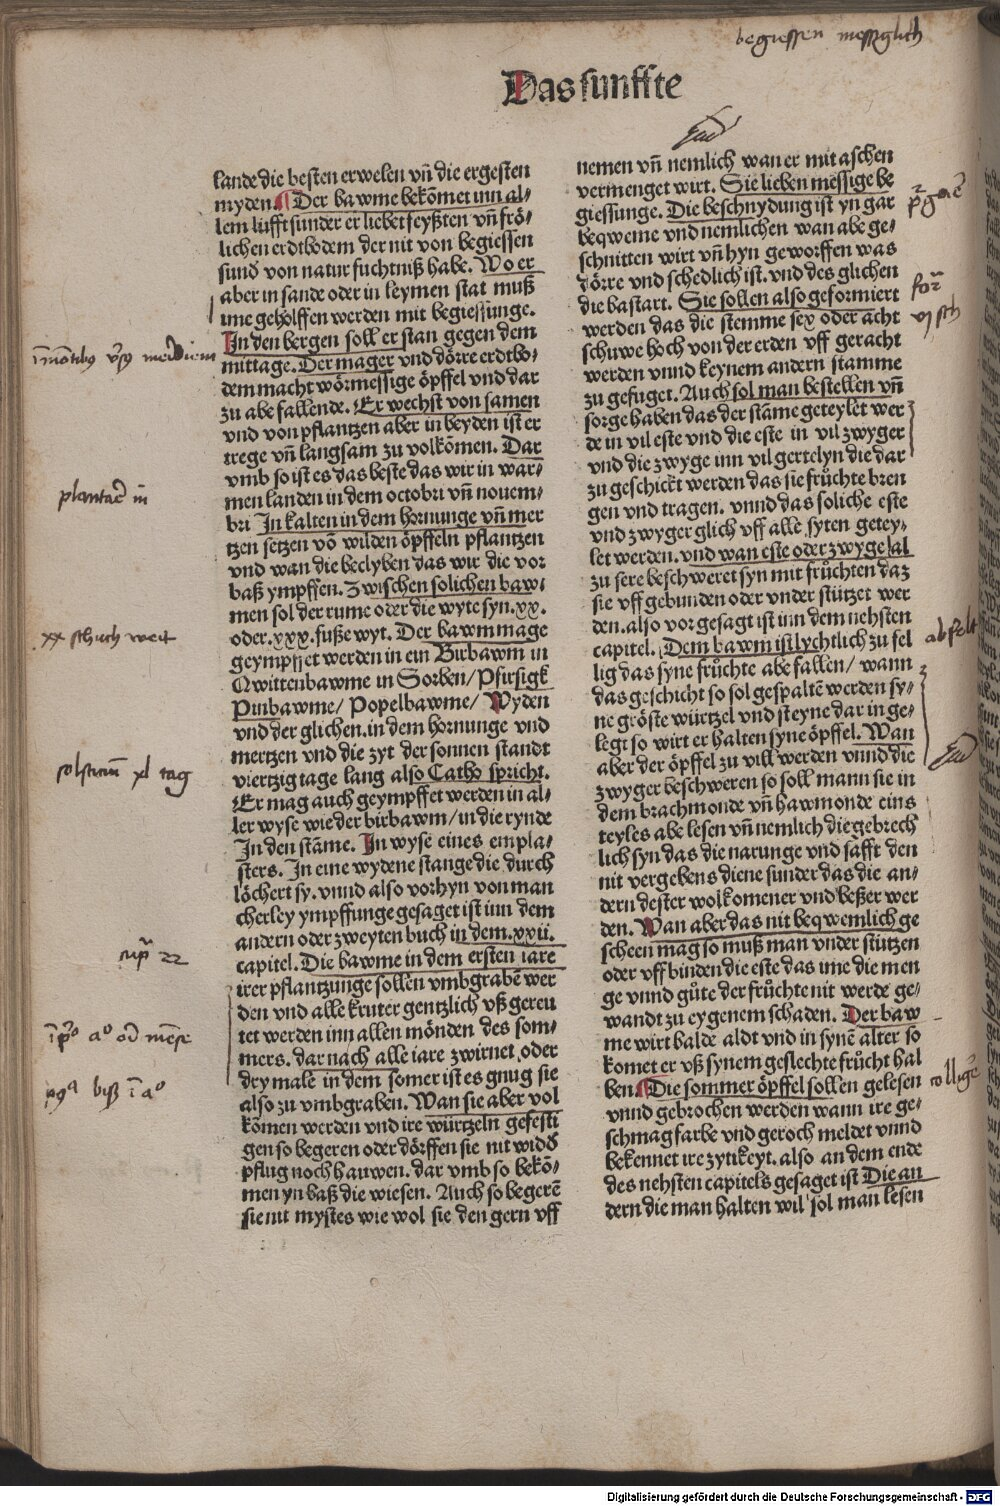 begiessen messglich
Das funffte
lande die besten erwelen vñ die ergesten
myden. Der bawme bekõmet inn al⸗
lem lufft sunder er liebet feyßten vñ frö⸗
lichen erdtbodem der nit von begiessen
sund von natur fuchtniß habe. Wo er
aber in sande oder in leymen stat muß
ime geholffen werden mit begiessunge.
In den bergen soll er stan gegen dem
mittage. Der mager vnd dörre erdtbo⸗
dem macht wörmessige öpffel vnd dar
zu abe fallende. Er wechst von samen
vnd von pflantzen aber in beyden ist er
trege vñ langsam zu volkõmen. Dar
vmb so ist es das beste das wir in war⸗
men landen in dem octobri vñ nouem⸗
bri In kalten in dem hornunge vñ mer
tzen setzen võ wilden öpffeln pflantzen
vnd wan die beclyben das wir die vor
baß ympffen. Zwischen solichen baw⸗
men sol der rume oder die wyte syn .xx.
oder .xxx. fuße wyt. Der bawm mage
geympffet werden in ein Birbawm in
Qwittenbawme in Sorben/ Pfirsigk
Pinbawme/ Popelbawme/ Wyden
vnd der glichen. in dem hornunge vnd
mertzen vnd die zyt der sonnen standt
viertzig tage lang also Catho spricht.
Er mag auch geympffet werden in al⸗
ler wyse wie der birbawm/ in die rynde
In den stãme. In wyse eines empla⸗
sters. In eine wydene stange die durch
löchert sy. vnnd also vorhyn von man
cherley ympffunge gesaget ist inn dem
andern oder zweyten buch in dem .xxii.
capitel. Die bawme in dem ersten iare
irer pflantzunge sollen vmbgrabē wer
den vnd alle kruter gentzlich vß gereu
tet werden inn allen mönden des som⸗
mers. dar nach alle iare zwirnet oder
dry male in dem somer ist es gnug sie
also zu vmbgraben. Wan sie aber vol
kõmen werden vnd ire würtzeln gefesti
gen so begeren oder dörffen sie nit wid
pflug noch hauwen. dar vmb so bekõ⸗
men yn baß die wiesen. Auch so begerē
sie nit mystes wie wol sie den gern vff
nemen vñ nemlich wan er mit aschen
vermenget wirt. Sie lieben messige be
giessunge. Die beschnydung ist yn gar
beqweme vnd nemlichen wan abe ge⸗
schnitten wirt vñ hyn geworffen was
dörre vnd schedlich ist. vnd des glichen
die bastart. Sie sollen also geformiert
werden das die stemme sex oder acht
schuwe hoch von der erden vff geracht
werden vnnd keynem andern stamme
zu gefuget. Auch sol man bestellen vñ
sorge haben das der stãme geteylet wer
de in vil este vnd die este in vil zwyger
vnd die zwyge inn vil gertelyn die dar
zu geschickt werden das sie früchte bren
gen vnd tragen. vnnd das soliche este
vnd zwyger glich vff alle syten getey⸗
let werden. vnd wan este oder zwyge al
zu sere beschweret syn mit früchten daz
sie vff gebunden oder vnder stützet wer
den. also vor gesagt ist inn dem nehsten
capitel. Dem bawm ist lychtlich zu fel
lig das syne früchte abe fallen/ wann
das geschicht so sol gespaltē werden sy⸗
ne gröste würtzel vnd steyne dar in ge⸗
legt so wirt er halten syne öpffel. Wan
aber der öpffel zu vill werden vnnd die
zwyger beschweren so soll mann sie in
dem brachmonde vñ hawmonde eins
teyles abe lesen vñ nemlich die gebrech
lich syn das die narunge vnd safft den
nit vergebens diene sunder das die an⸗
dern dester wolkomener vnd beßer wer
den. Wan aber das nit beqwemlich ge
scheen mag so muß man vnder stützen
oder vff binden die este das ime die men
ge vnnd güte der früchte nit werde ge⸗
wandt zu eygenem schaden. Der baw⸗
me wirt balde aldt vnd in synē alter so
komet er vß synem geslechte frücht hal
ben. Die sommer öpffel sollen gelesen
vnnd gebrochen werden wann ire ge⸗
schmag farbe vnd geroch meldet vnnd
bekennet ire zytikeyt. also an dem ende
des nehsten capitels gesaget ist Die an
dern die man halten wil sol man lesen
xx schuch weit
xl tag
Digitalisierung gefördert durch die Deutsche Forschungsgemeinschaft - DFG